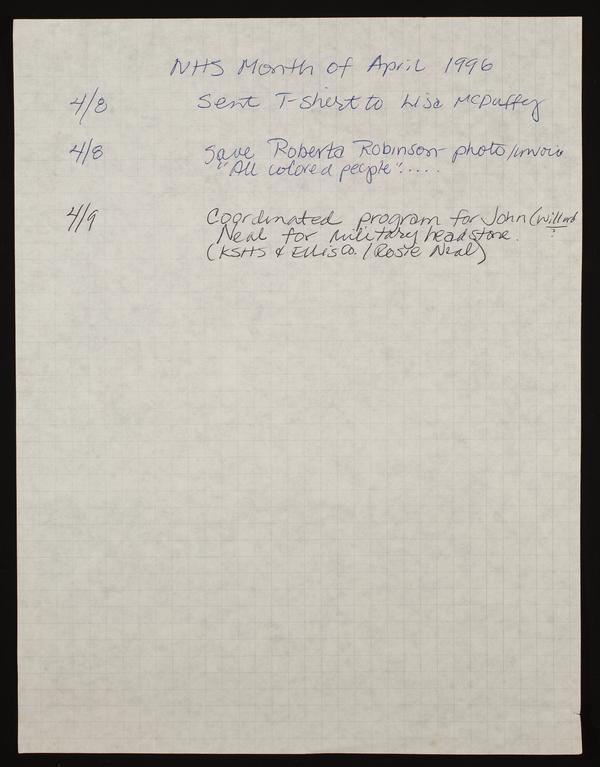 NHS Month of April 1996
4/8 Sent T-shirt to Lisa McDuffey
4/8 Save Roberta Robinson - photo/invoice
"All colored people"....
4/9 Coordinated program for John (Willard
Neal for military headstone. ?
(KSHS & Ellis Co. / Rosie Neal)